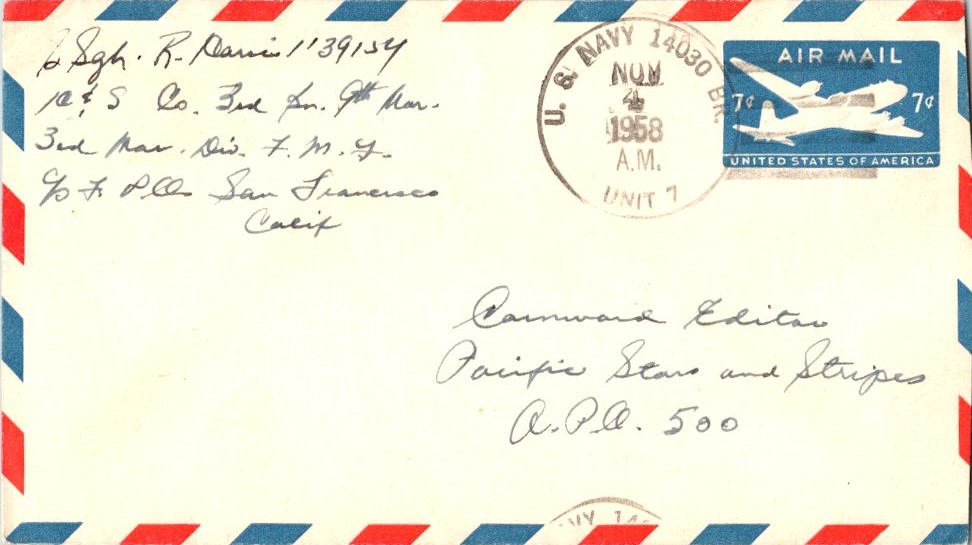 S Sgt. R. Davis 1139154
H & S Co. 3rd Bn. 9th Mar.
3rd Mar. Div. F.M.F.
c/o F.P.O. San Francisco
Calif
U. S. NAVY 14030 BR.
NOV
4
1958
A.M.
UNIT 7
AIR MAIL
7¢ 7¢
UNITED STATES OF AMERICA
Editor
Pacific Stars and Stripes
A.P.O. 500
NAVY 140